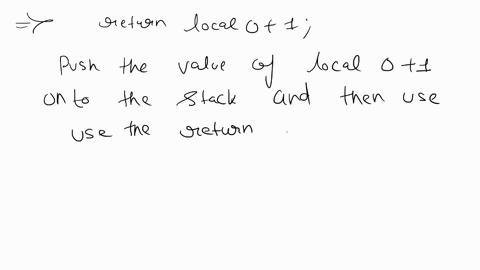 => return local 0+1;
Push the value of local 0+1
onto the stack and then use
use the return